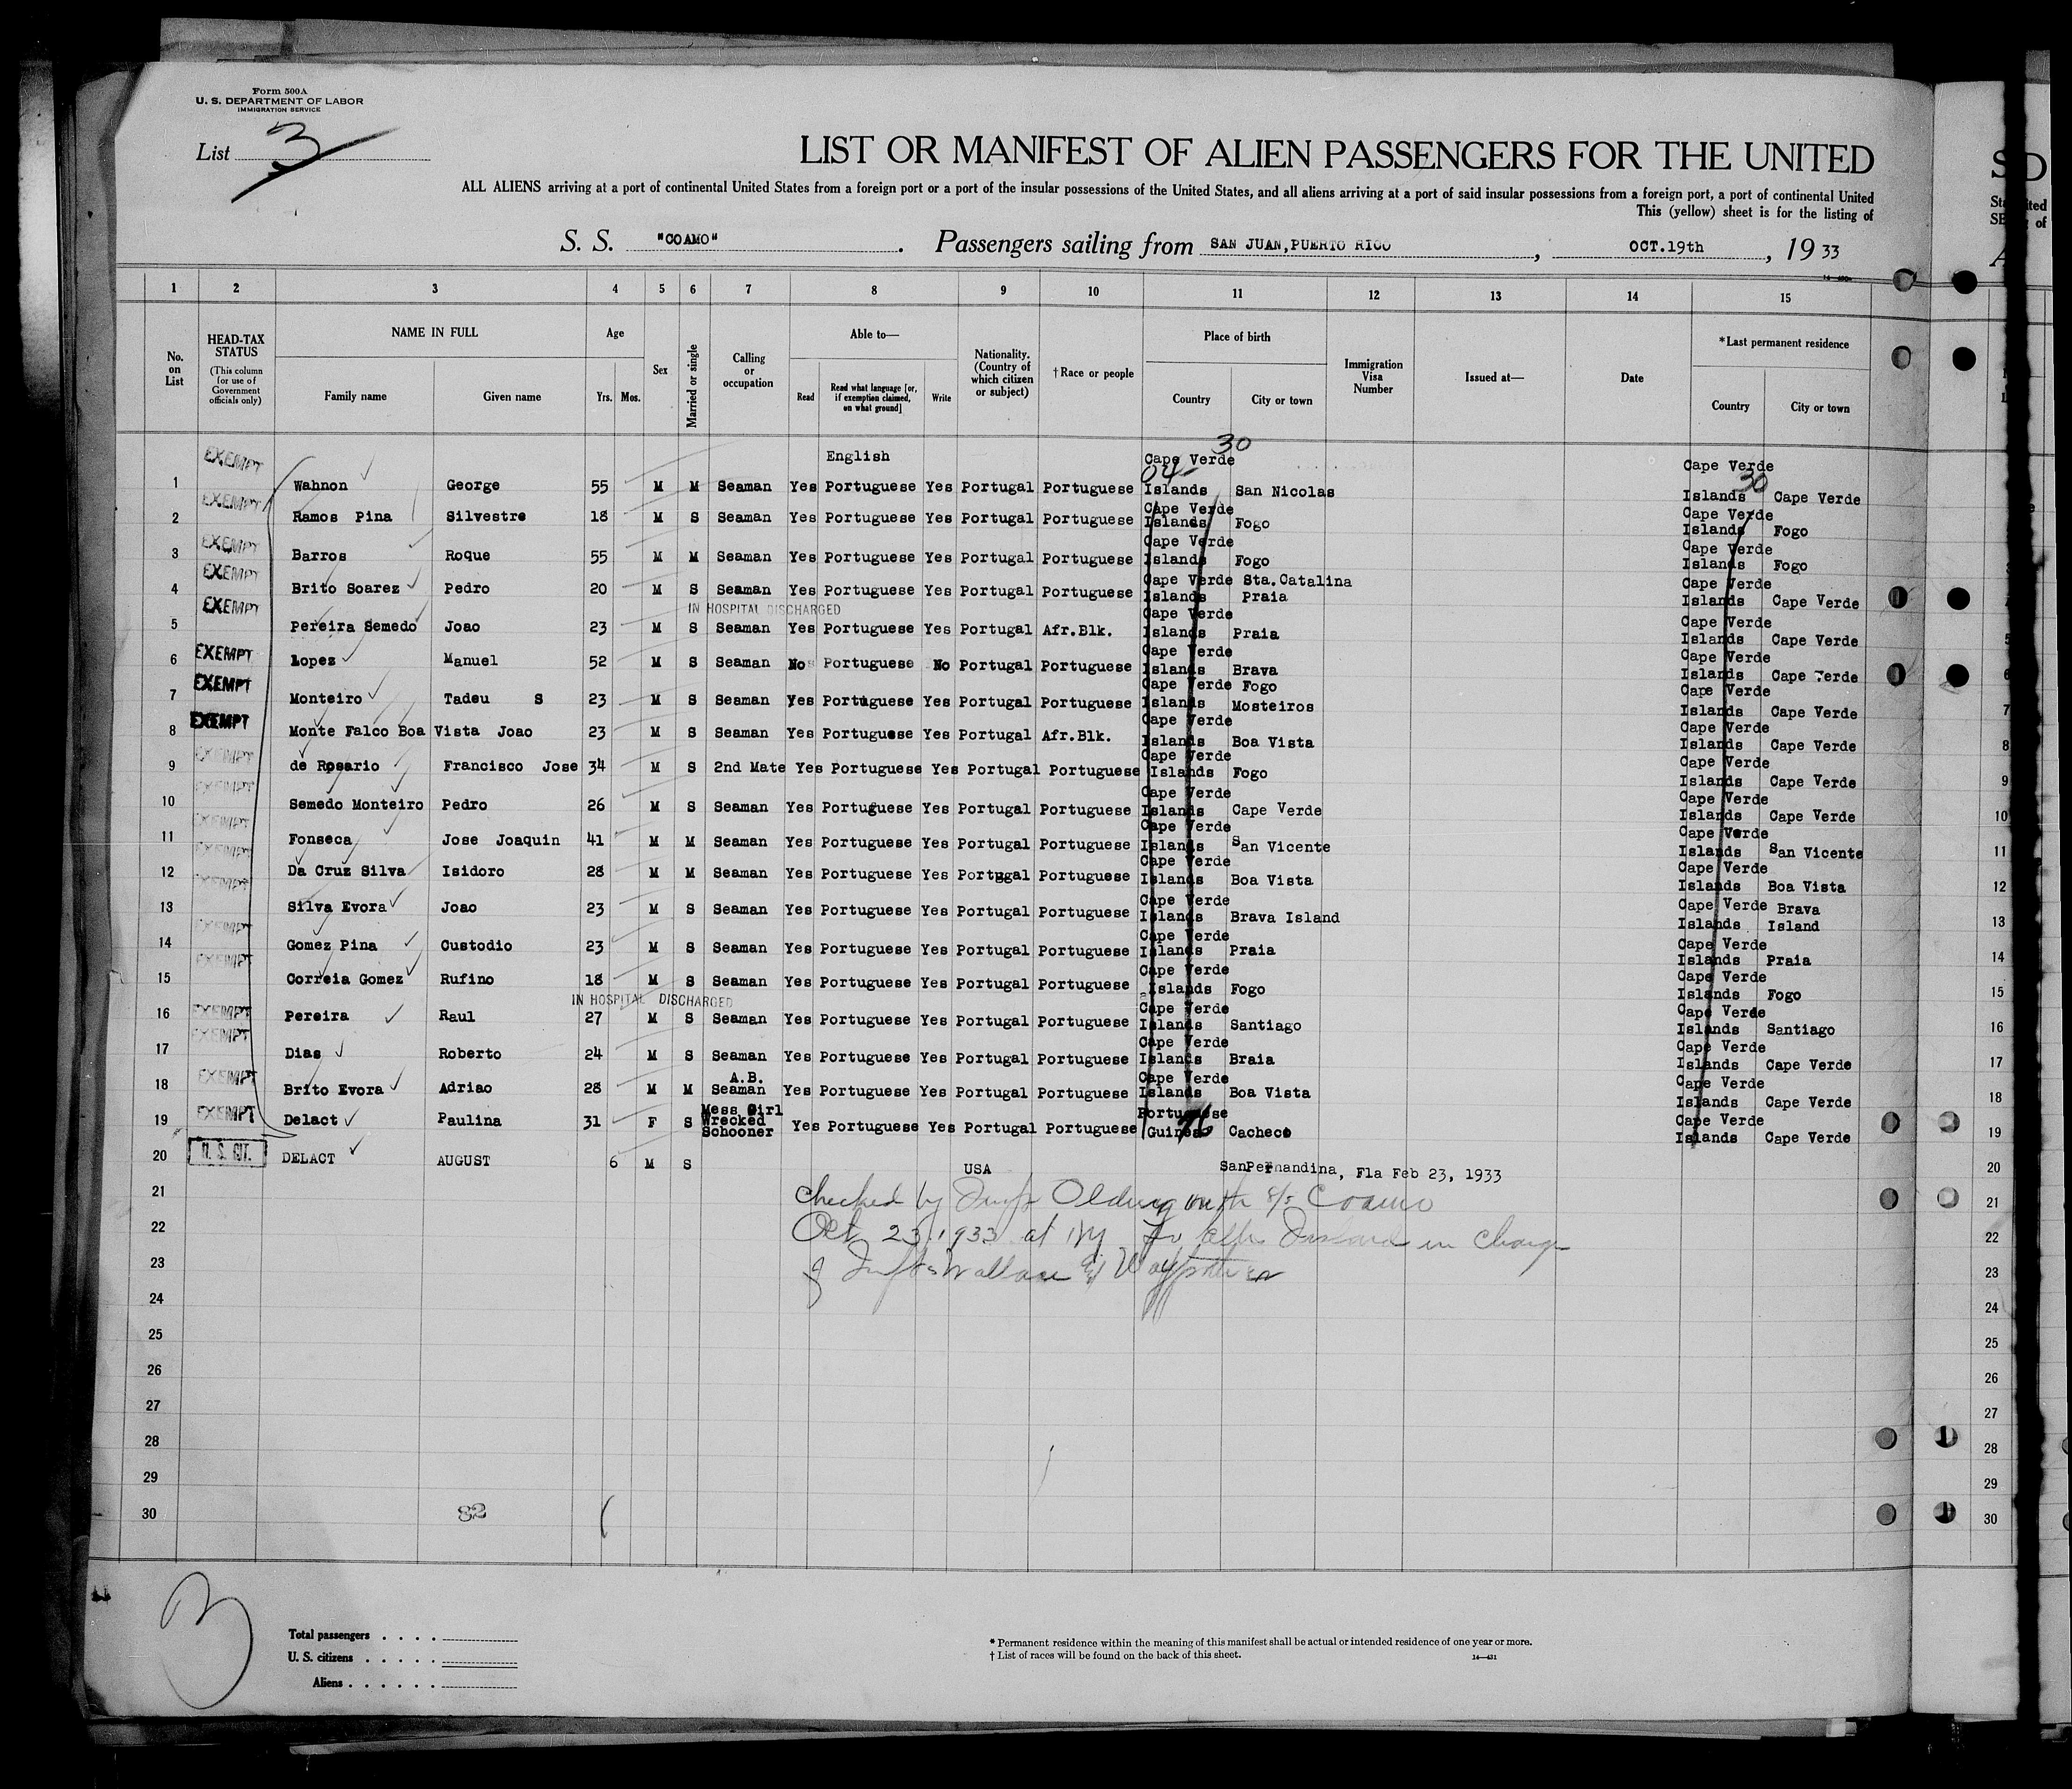 Form 500A
U. S. DEPARTMENT OF LABOR
IMMIGRATION SERVICE
List 3
LIST OR MANIFEST OF ALIEN PASSENGERS FOR THE UNITED
ALL ALIENS arriving at a port of continental United States from a foreign port or a port of the insular possessions of the United States, and all aliens arriving at a port of said insular possessions from a foreign port, a port of continental United
This (yellow) sheet is for the listing of
S. S. "COAMO". Passengers sailing from SAN JUAN,PUERTO RICO, OCT.19th, 19 33
1 2 3 4 5 6 7 8 9 10 11 12 13 14 15
No. on List
HEAD-TAX STATUS (This column for use of Government officials only)
NAME IN FULL
Family name Given name
Age
Yrs. Mos.
Sex
Married or single
Calling or occupation
Able to—
Read Read what language [or, if exemption claimed, on what ground] Write
Nationality. (Country of which citizen or subject)
†Race or people
Place of birth
Country City or town
Immigration Visa Number
Issued at—
Date
*Last permanent residence
Country City or town
30
04
30
1 EXEMPT Wahnon George 55 M M Seaman Yes English Portuguese Yes Portugal Portuguese Cape Verde Islands San Nicolas Cape Verde Islands Cape Verde
2 EXEMPT Ramos Pina Silvestre 18 M S Seaman Yes Portuguese Yes Portugal Portuguese Cape Verde Islands Fogo Cape Verde Islands Fogo
3 EXEMPT Barros Roque 55 M M Seaman Yes Portuguese Yes Portugal Portuguese Cape Verde Islands Fogo Cape Verde Islands Fogo
4 EXEMPT Brito Soarez Pedro 20 M S Seaman Yes Portuguese Yes Portugal Portuguese Cape Verde Islands Sta.Catalina Praia Cape Verde Islands Cape Verde
IN HOSPITAL DISCHARGED
5 EXEMPT Pereira Semedo Joao 23 M S Seaman Yes Portuguese Yes Portugal Afr.Blk. Cape Verde Islands Praia Cape Verde Islands Cape Verde
6 EXEMPT Lopez Manuel 52 M S Seaman No Portuguese No Portugal Portuguese Cape Verde Islands Brava Cape Verde Islands Cape Verde
7 EXEMPT Monteiro Tadeu S 23 M S Seaman Yes Portuguese Yes Portugal Portuguese Cape Verde Islands Fogo Mosteiros Cape Verde Islands Cape Verde
8 EXEMPT Monte Falco Boa Vista Joao 23 M S Seaman Yes Portuguese Yes Portugal Afr.Blk. Cape Verde Islands Boa Vista Cape Verde Islands Cape Verde
9 EXEMPT de Rosario Francisco Jose 34 M S 2nd Mate Yes Portuguese Yes Portugal Portuguese Cape Verde Islands Fogo Cape Verde Islands Cape Verde
10 EXEMPT Semedo Monteiro Pedro 26 M S Seaman Yes Portuguese Yes Portugal Portuguese Cape Verde Islands Cape Verde Cape Verde Islands Cape Verde
11 EXEMPT Fonseca Jose Joaquin 41 M M Seaman Yes Portuguese Yes Portugal Portuguese Cape Verde Islands San Vicente Cape Verde Islands San Vicente
12 EXEMPT Da Cruz Silva Isidoro 28 M M Seaman Yes Portuguese Yes Portugal Portuguese Cape Verde Islands Boa Vista Cape Verde Islands Boa Vista
13 EXEMPT Silva Evora Joao 23 M S Seaman Yes Portuguese Yes Portugal Portuguese Cape Verde Islands Brava Island Cape Verde Islands Brava Island
14 EXEMPT Gomez Pina Custodio 23 M S Seaman Yes Portuguese Yes Portugal Portuguese Cape Verde Islands Praia Cape Verde Islands Praia
15 EXEMPT Correia Gomez Rufino 18 M S Seaman Yes Portuguese Yes Portugal Portuguese Cape Verde Islands Fogo Cape Verde Islands Fogo
IN HOSPITAL DISCHARGED
16 EXEMPT Pereira Raul 27 M S Seaman Yes Portuguese Yes Portugal Portuguese Cape Verde Islands Santiago Cape Verde Islands Santiago
17 EXEMPT Dias Roberto 24 M S Seaman Yes Portuguese Yes Portugal Portuguese Cape Verde Islands Braia Cape Verde Islands Cape Verde
18 EXEMPT Brito Evora Adriao 28 M M A.B. Seaman Yes Portuguese Yes Portugal Portuguese Cape Verde Islands Boa Vista Cape Verde Islands Cape Verde
19 EXEMPT Delact Paulina 31 F S Mess Girl Wrecked Schooner Yes Portuguese Yes Portugal Portuguese Portuguese Guinea Cacheco Cape Verde Islands Cape Verde
20 U. S. CIT. DELACT AUGUST 6 M S USA SanFernandina, Fla Feb 23, 1933
21 checked by Insp Oldung on th s/s Coamo
22 Oct 23. 1933 at NY to Ellis Island in charge
23 of Insps Wallace &
24
25
26
27
28
29
30
82
3
Total passengers . . . .
U. S. citizens . . . . .
Aliens . . . . . .
* Permanent residence within the meaning of this manifest shall be actual or intended residence of one year or more.
† List of races will be found on the back of this sheet.
14—431